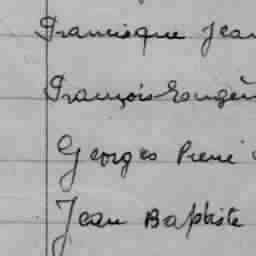 Francisque Jean
François Eugèn
Georges Pierre
Jean Baptiste